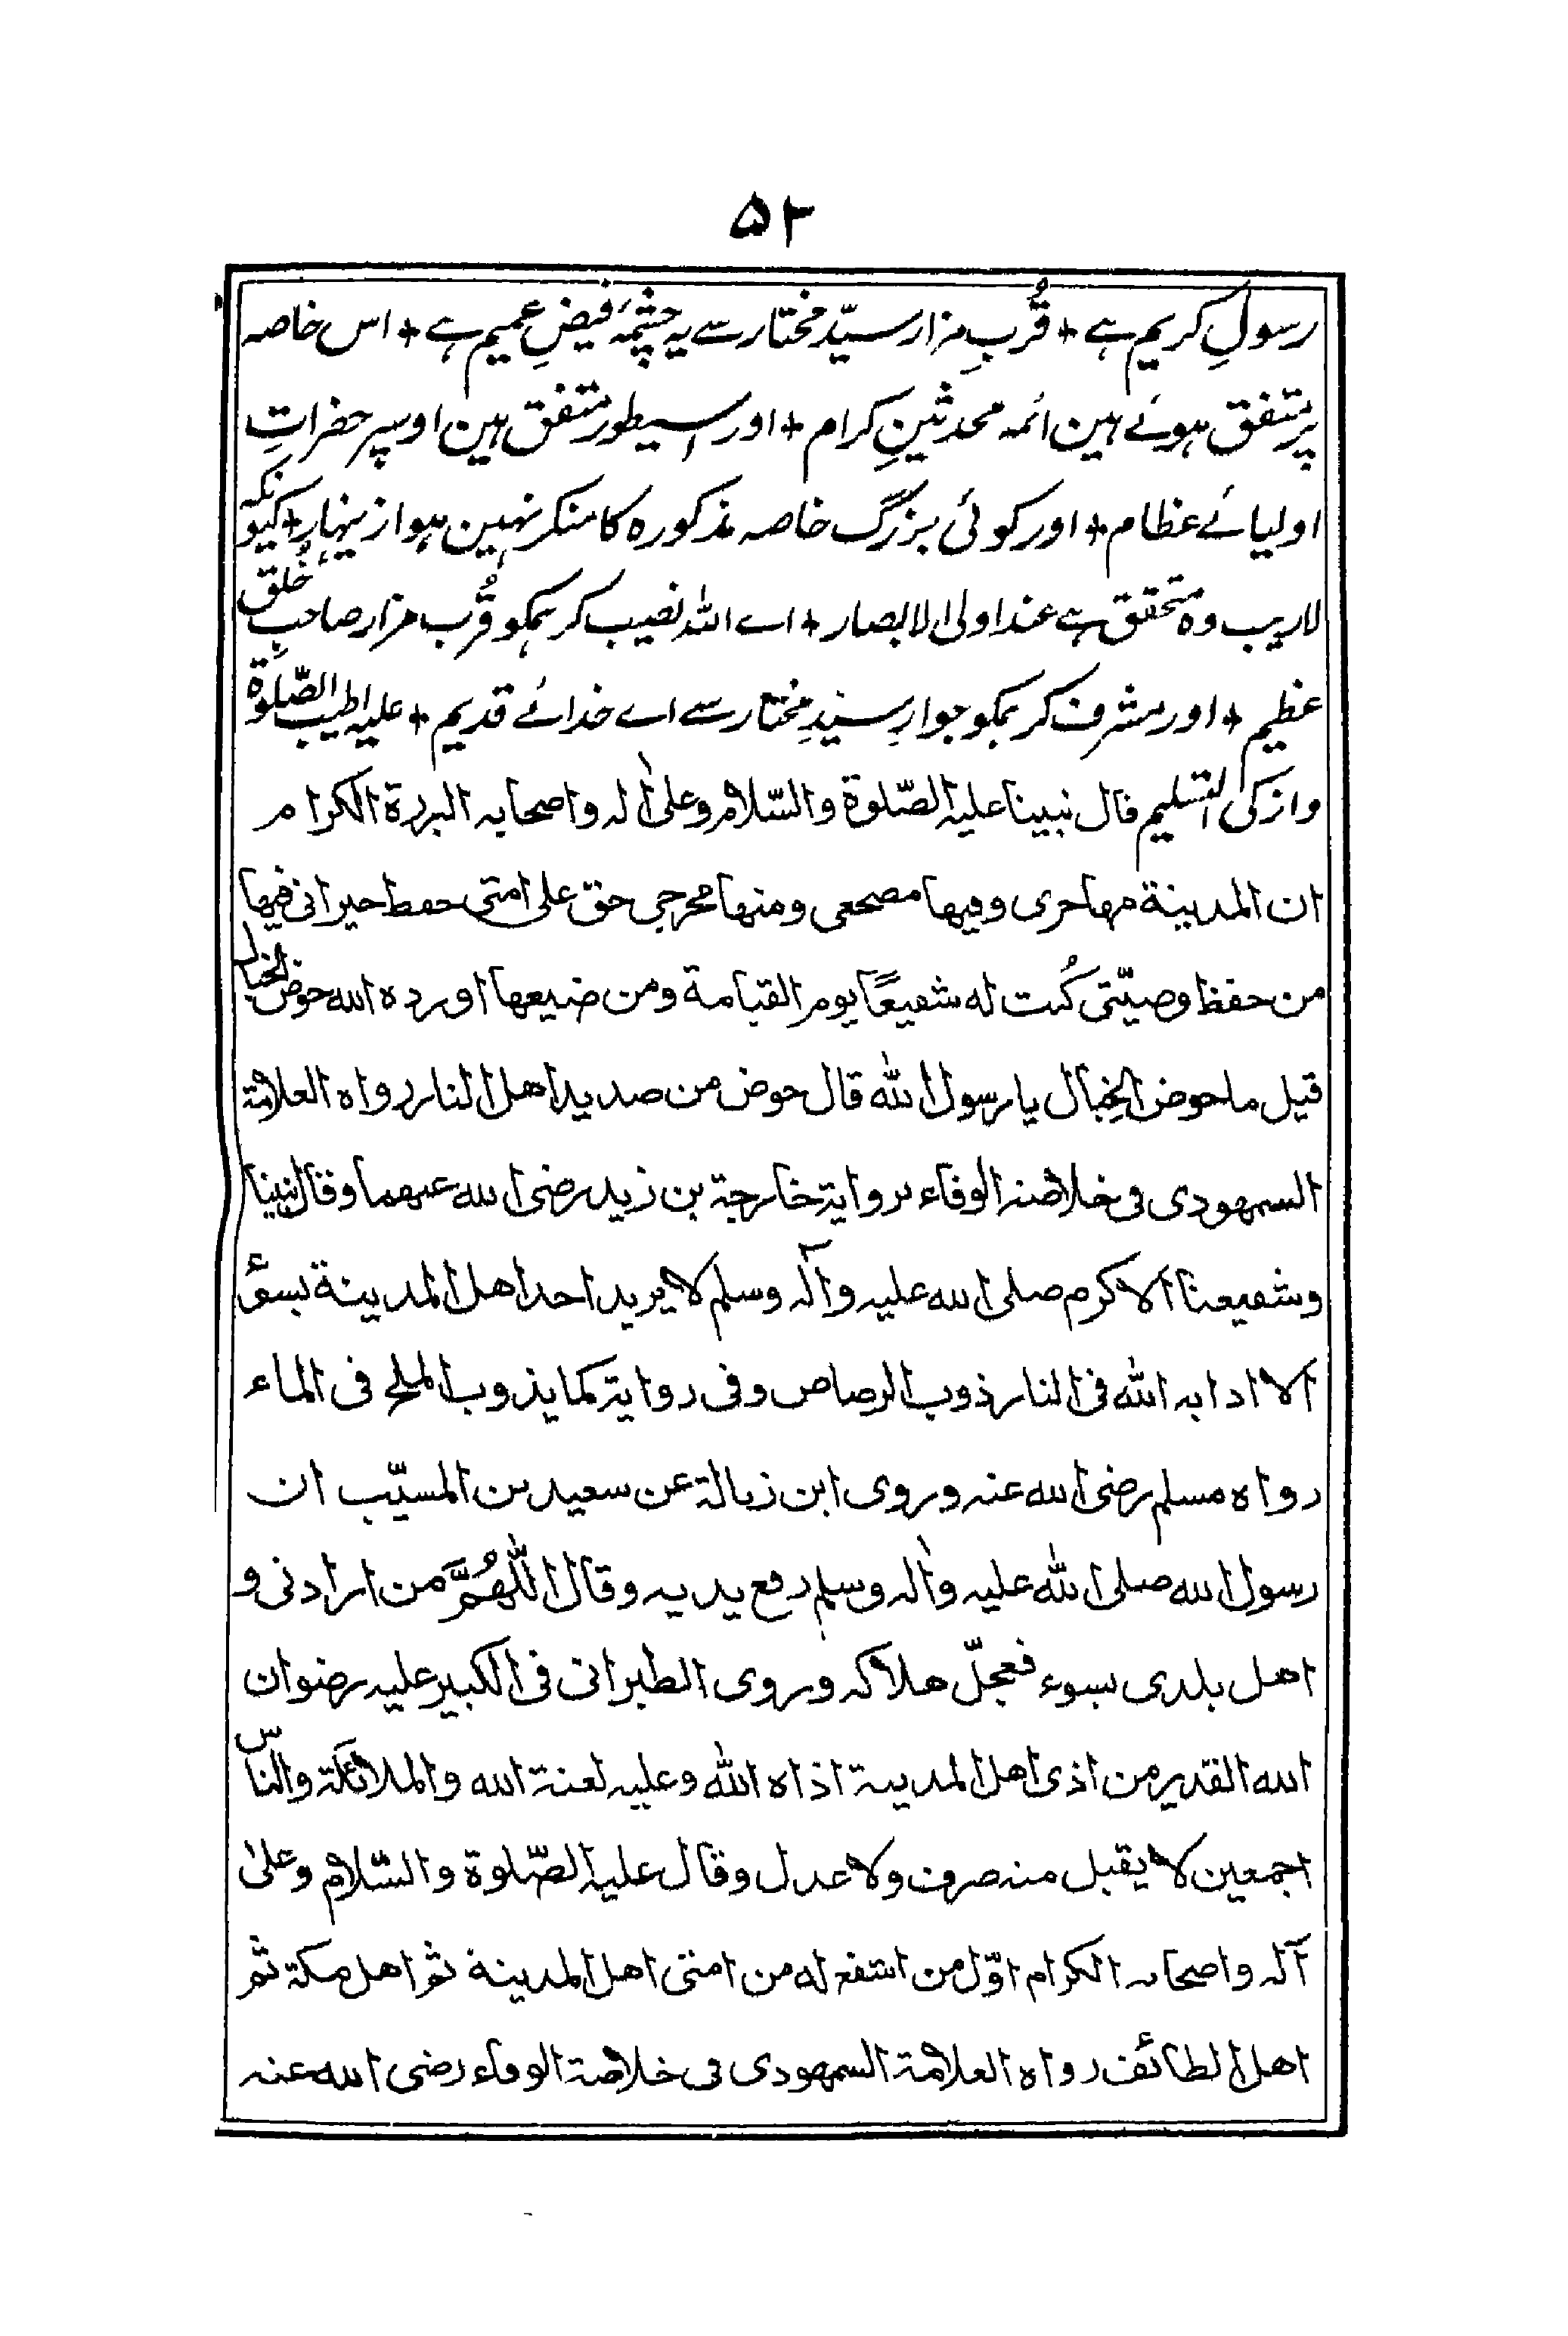 ۵۲
رسولِ کریم ہے + قُربِ مزار سیّد مختار سے یہ چشمۂ فیضِ عمیم ہے + اس خاصہ
پر متفق ہوئے ہین ائمہ محدثینِ کرام + اور اسیطور متفق ہین اوسپر حضراتِ
اولیائے عظام + اور کوئی بزرگ خاصہ مذکورہ کا منکر نہین ہوا زینہار + کیونکہ
لاریب وہ متحقق ہے عند اولی الابصار + اے اللہ نصیب کر ہمکو قُرب مزار صاحبِ خُلق
عظیم + اور مشرف کر ہمکو جوارِ سیدِ مختار سے اے خدائے قدیم + علیہ اطیب الصّلوة
وازکی التسلیم قال نبینا علیہ الصّلوة والسّلام وعلیٰ اٰلہ واصحابہ البررة الکرام
ان المدینة مهاجری وفیها مضجعی ومنها مخرجی حق علی امتی حفظ جیرانی فیها
من حفظ وصیّتی کُنت له شفیعًا یوم القیامة ومن ضیعها اورده الله حوض الخبال
قیل ما حوض الخِبال یا رسول الله قال حوض من صدید اهل النار رواه العلامة
السمهودی فی خلاصة الوفاء بروایة خارجة بن زید رضی الله عنهما وقال نبینا
وشفیعنا الاکرم صلی الله علیہ وآلہ وسلم لا یرید احد اهل المدینة بسوٓءٍ
الا اذابہ الله فی النار ذوب الرصاص وفی روایة کما یذوب الملح فی الماء
رواه مسلم رضی الله عنہ وروی ابن زبالة عن سعید بن المسیّب ان
رسول الله صلی الله علیہ واٰلہ وسلم رفع یدیہ وقال اللّٰهُمَّ من ارادنی و
اهل بلدی بسوء فعجلّ هلاکہ وروی الطبرانی فی الکبیر علیہ رضوان
الله القدیر من اذی اهل المدینة اذاه الله وعلیہ لعنة الله والملائکة والناس
اجمعین لا یقبل منہ صرف ولا عدل وقال علیہ الصّلوة والسّلام وعلیٰ
آلہ واصحابہ الکرام اوّل من اشفع له من امتی اهل المدینة ثم اهل مکة ثم
اهل الطائف رواه العلامة السمهودی فی خلاصة الوفاء رضی الله عنہ